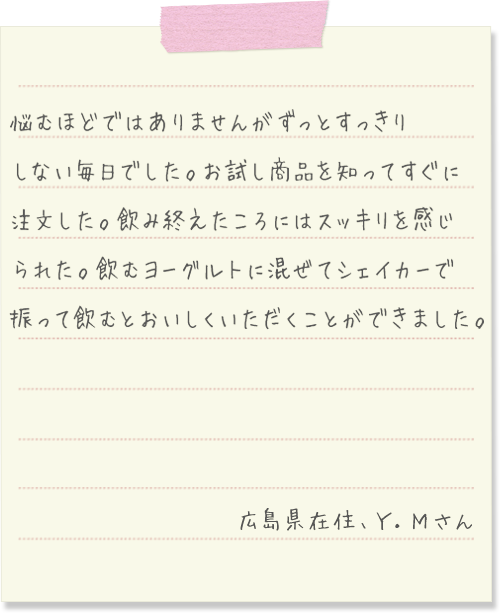 悩むほどではありませんがずっとすっきり
しない毎日でした。お試し商品を知ってすぐに
注文した。飲み終えたころにはスッキリを感じ
られた。飲むヨーグルトに混ぜてシェイカーで
振って飲むとおいしくいただくことができました。
広島県在住、Y.Mさん